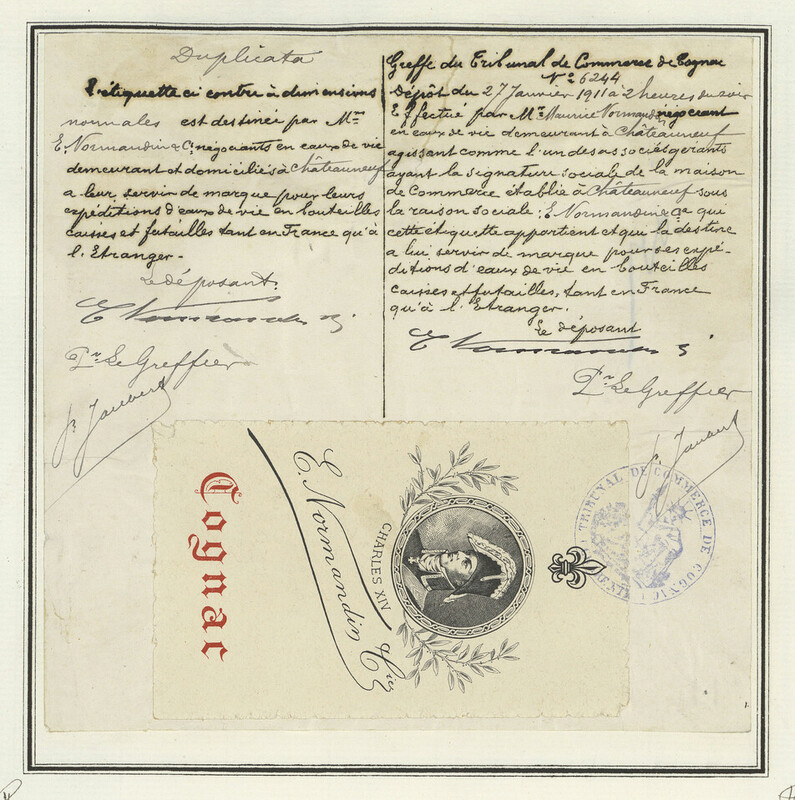 Duplicata
L'étiquette ci contre à dimensions
normales est destinée par Mrs
E. Normandin & Cie négociants en eaux de vie
demeurant et domiciliés à Châteauneuf
a leur servir de marque pour leurs
expéditions d'eaux de vie en bouteilles
caisses et futailles tant en France qu'à
l'Etranger.-
Le déposant.
E Normandin
Pr Le Greffier
Greffe du Tribunal de Commerce de Cognac
No 6244
Dépôt du 27 Janvier 1911 à 2 heures du soir
Effectué par Mr Maurice Normandin négociant
en eaux de vie demeurant à Châteauneuf
agissant comme l'un des associés gérants
ayant la signature sociale de la maison
de Commerce établie à Châteauneuf sous
la raison sociale: E Normandin & Cie qui
cette etiquette appartient et qui la destine
a lui servir de marque pour ses expé-
ditions d'eaux de vie en bouteilles
caisses et futailles, tant en France
qu'à l'Etranger.
Le déposant
E Normandin
Pr Le Greffier
CHARLES XIV
E. Normandin & Cie
Cognac
TRIBUNAL DE COMMERCE DE COGNAC